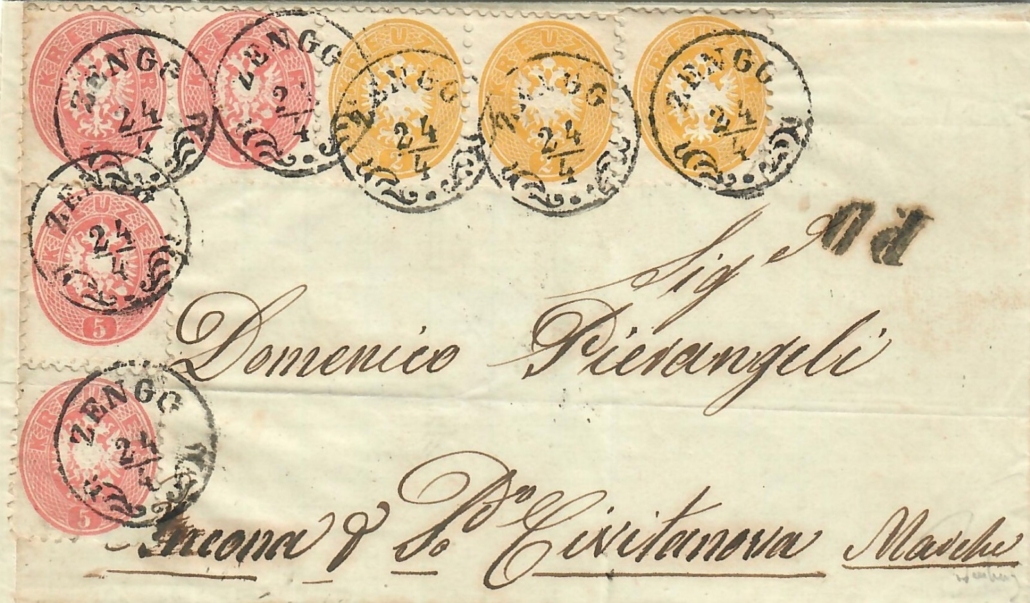 ZENGG 24/4
ZENGG 24/4
ZENGG 24/4
ZENGG 24/4
ZENGG 24/4
ZENGG 24/4
5
ZENGG 24/4
5
P.D.
Sig.r
Domenico Pierangeli
Ancona & Po. Civitanova Marche